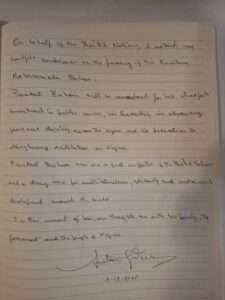 On behalf of the United Nations, I extend my
heartfelt condolences on the passing of
Muhammadu Buhari.
President Buhari will be remembered for his steadfast
commitment to public service, his leadership in advancing
peace and stability across the region and his dedication to
strengthening institutions in Nigeria.
President Buhari was also a great supporter of the United Nations
and a strong voice for multilateralism, solidarity and sustainable
development around the world.
In this moment of loss, our thoughts are with his family, the
government and the people of Nigeria.